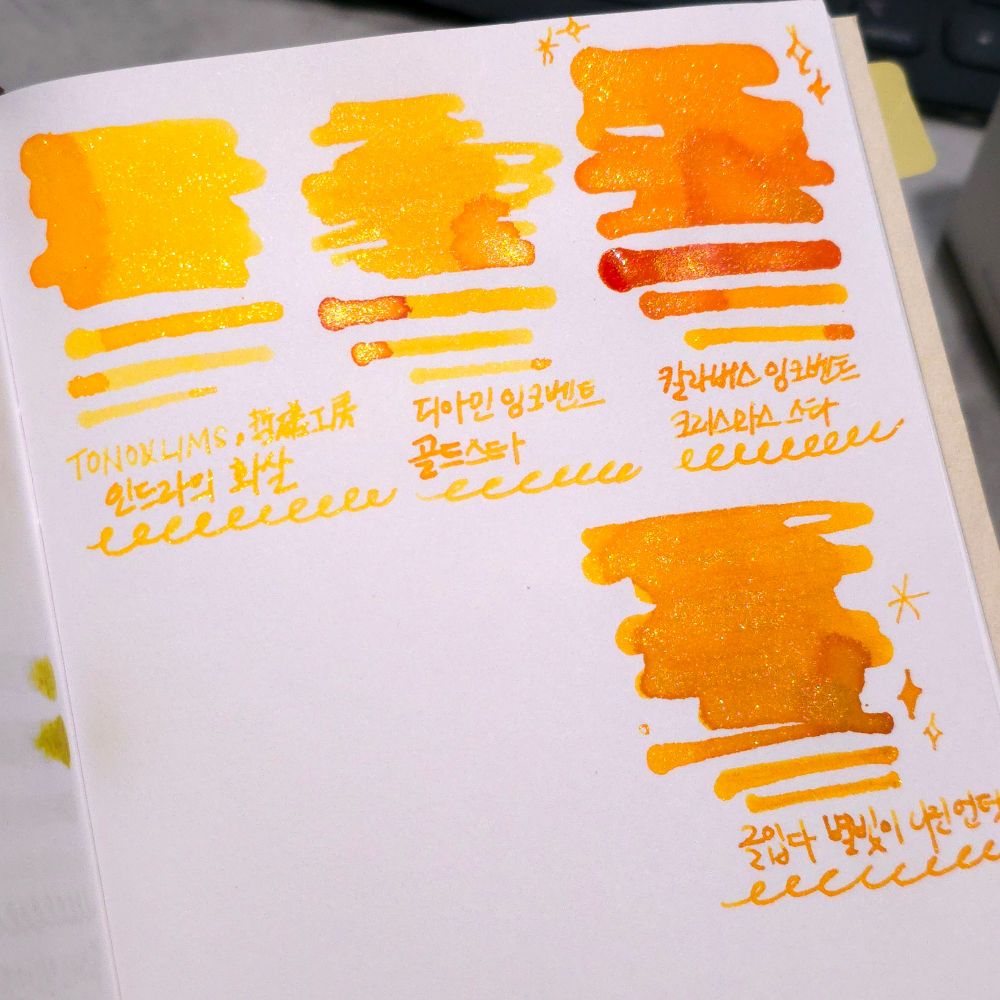 TONO&LIMS, 哲磨工房
인드라의 화살
디아민 잉크벤트
골드스타
칼라버스 잉크벤트
크리스마스 스타
글입다 별빛이 내린 언덕